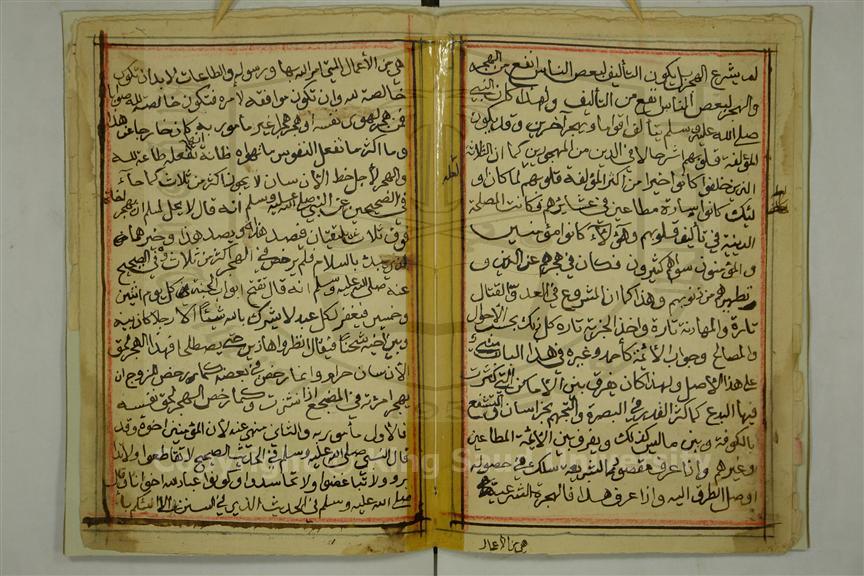 لم يشرع الهجر بل يكون التأليف لبعض الناس انفع من الهجر
والهجر لبعض الناس انفع من التأليف ولهذا كان النبي
صلى الله عليه وسلم يتألف اقواما ويهجر آخرين وقد يكون
المؤلفة قلوبهم اشر حالا في الدين من المهجورين كما ان الثلاثة
الذين خلفوا كانوا خيرا من اكثر المؤلفة قلوبهم لما كان او
لئك كانوا سادة مطاعين في عشائرهم فكانت المصلحة
الدينية في تأليف قلوبهم وهؤلاء كانوا مؤمنين
والمؤمنون سواهم كثيرون فكان في هجرهم عز الدين و
وتطهيرهم من ذنوبهم وهذا كما ان المشروع في العدو القتال
تارة والمهادنة تارة واخذ الجزية تارة كل ذلك بحسب الاحوال
والمصالح وجواب الائمة كأحمد وغيره في هذا الباب مبني
على هذا الاصل ولهذا كان يفرق بين الاماكن التي كثرت
فيها البدع كما كثر القدر في البصرة والتجهم بخراسان والتشيع
بالكوفة وبين ما ليس كذلك ويفرق بين الائمة المطاعين
وغيرهم واذا عرف مقصود الشريعة سلك في حصوله
اوصل الطرق اليه واذا عرف هذا فالهجرة الشرعية
هي من الأعمال
هي من الأعمال التي امر الله بها ورسوله والطاعات لابد ان تكون
خالصة لله وان تكون موافقة لامره فتكون خالصة لله صوابا
فمن هجر لهوى نفسه او هجر هجرا غير مأمور به كان خارجا عن هذا
وما اكثر ما تفعل النفوس ما تهواه ظانة انها تفعله طاعة لله
والهجر لأجل حظ الانسان لا يجوز اكثر من ثلاث كما جاء
في الصحيحين عن النبي صلى الله عليه وسلم انه قال لا يحل لمسلم ان يهجر اخاه
فوق ثلاث يلتقيان فيصد هذا ويصد هذا وخيرهما
الذي يبدأ بالسلام فلم يرخص في الهجر اكثر من ثلاث وفي الصحيح
عنه صلى الله عليه وسلم انه قال تفتح ابواب الجنة كل يوم اثنين
وخميس فيغفر لكل عبد لا يشرك بالله شيئا الا رجلا كان بينه
وبين اخيه شحناء فيقال انظروا هاذين حتى يصطلحا فهذا الهجر لحق
الانسان حرام وانما رخص في بعضه كما رخص للزوج ان
يهجر امرأته في المضجع اذا نشزت وكما رخص الهجر لحق نفسه
فالاول مأمور به والثاني منهي عنه لان المؤمنين اخوة وقد
قال النبي صلى الله عليه وسلم في الحديث الصحيح لا تقاطعوا ولا تدا
بروا ولا تباغضوا ولا تحاسدوا وكونوا عباد الله اخوانا وقال
صلى الله عليه وسلم في الحديث الذي في السنن الا انبئكم با
Copyright © King Saud University